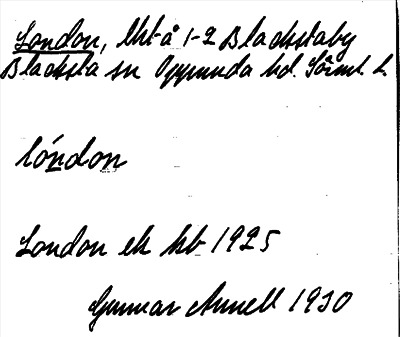 London, lht å 1-2 Blackstaby
Blacksta sn Oppunda hd. Söml. L.
lóndon
London ek kb 1925
Gunnar Annell 1930